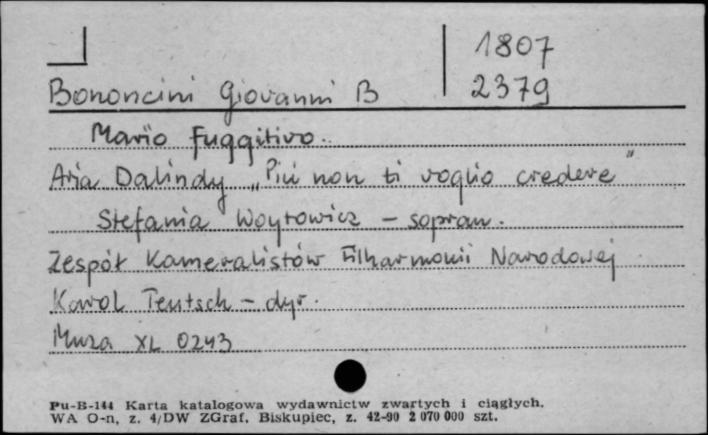 1807
Bononcini Giovanni B 2379
Mario fuggitivo.
Aria Dalindy „Più non ti voglio credere"
Stefania Woytowicz – sopran.
Zespół Kameralistów Filharmonii Narodowej
Karol Teutsch – dyr.
Muza XL 0243
Pu-B-144 Karta katalogowa wydawnictw zwartych i ciągłych.
WA O-n, z. 4/DW ZGraf. Biskupiec, z. 42-90 2 070 000 szt.